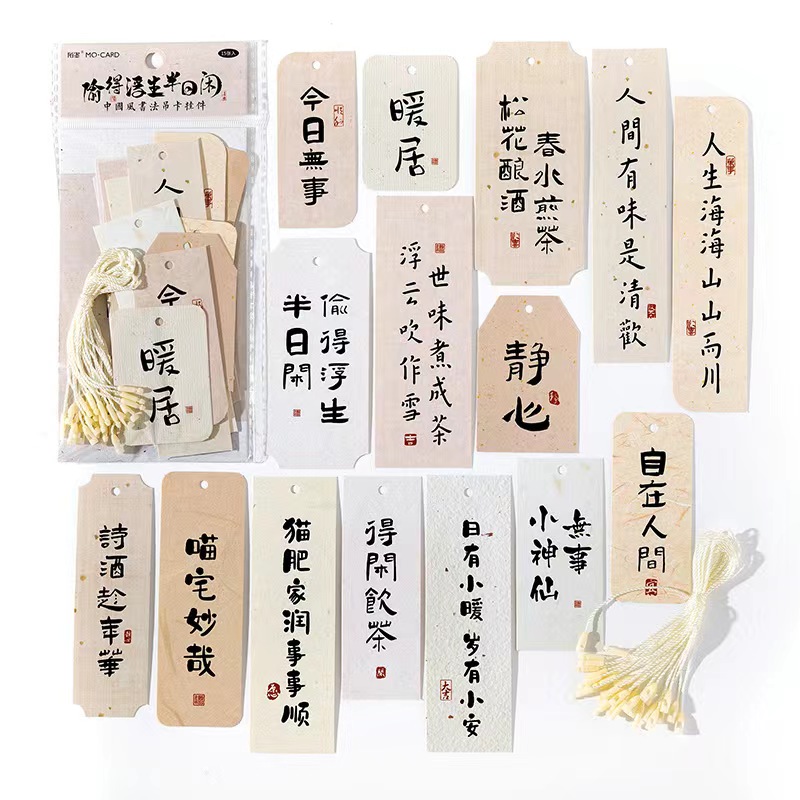 陌客 MO·CARD
15张入
偷得浮生半日闲
中國風書法吊卡挂件
人
今
暖居
今日無事
暖居
春水煎茶
松花酿酒
人間有味是清歡
人生海海山山而川
偷得浮生
半日閑
世味煮成茶
浮云吹作雪
吉
静心
自在人間
詩酒趁年華
喵宅妙哉
猫肥家润事事顺
得閑飲茶
日有小暖岁有小安
無事
小神仙